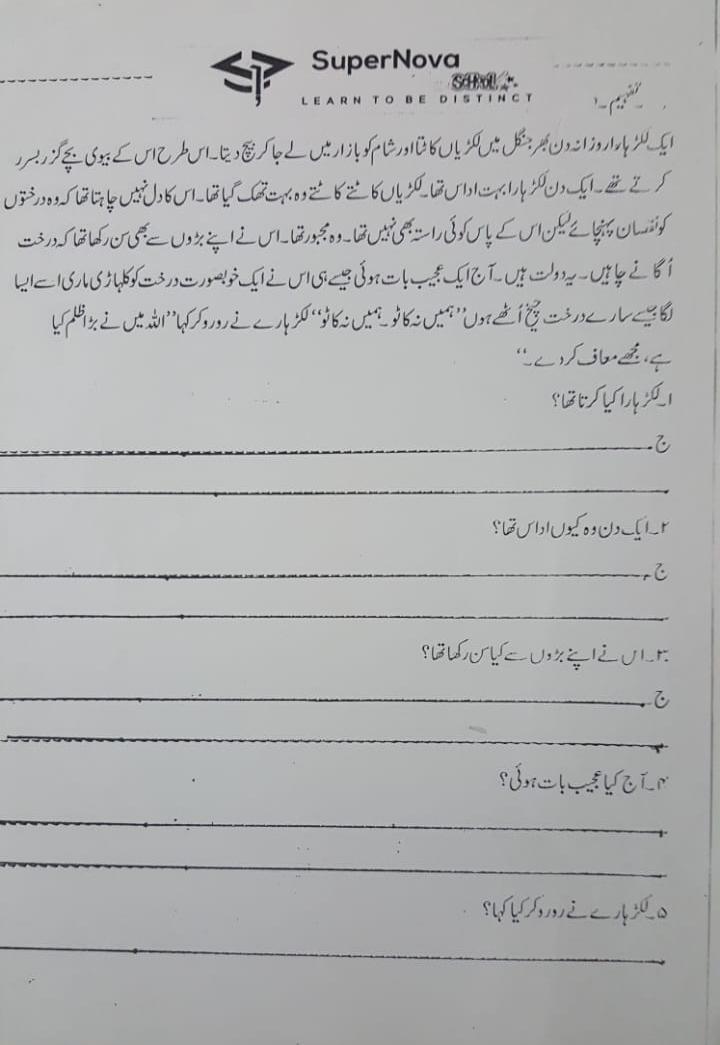 SuperNova
School
LEARN TO BE DISTINCT
تفہیم ۔ ۱
ایک لکڑہارا روزانہ دن بھر جنگل میں لکڑیاں کاٹتا اور شام کو بازار میں لے جا کر بیچ دیتا۔ اس طرح اس کے بیوی بچے گزر بسر
کرتے تھے۔ ایک دن لکڑہارا بہت اداس تھا۔ لکڑیاں کاٹتے کاٹتے وہ بہت تھک گیا تھا۔ اس کا دل نہیں چاہتا تھا کہ وہ درختوں
کو نقصان پہنچائے لیکن اس کے پاس کوئی راستہ بھی نہیں تھا۔ وہ مجبور تھا۔ اس نے اپنے بڑوں سے بھی سن رکھا تھا کہ درخت
اُگانے چاہیں۔ یہ دولت ہیں۔ آج ایک عجیب بات ہوئی جیسے ہی اس نے ایک خوبصورت درخت کو کلہاڑی ماری اسے ایسا
لگا جیسے سارے درخت چیخ اُٹھے ہوں ’’ہمیں نہ کاٹو۔ ہمیں نہ کاٹو‘‘ لکڑہارے نے رو رو کر کہا ’’اللہ میں نے بڑا ظلم کیا
ہے، مجھے معاف کر دے۔‘‘
۱۔ لکڑہارا کیا کرتا تھا؟
ج۔
۲۔ ایک دن وہ کیوں اداس تھا؟
ج۔
۳۔ اس نے اپنے بڑوں سے کیا سن رکھا تھا؟
ج۔
۴۔ آج کیا عجیب بات ہوئی؟
۵۔ لکڑہارے نے رو رو کر کیا کہا؟